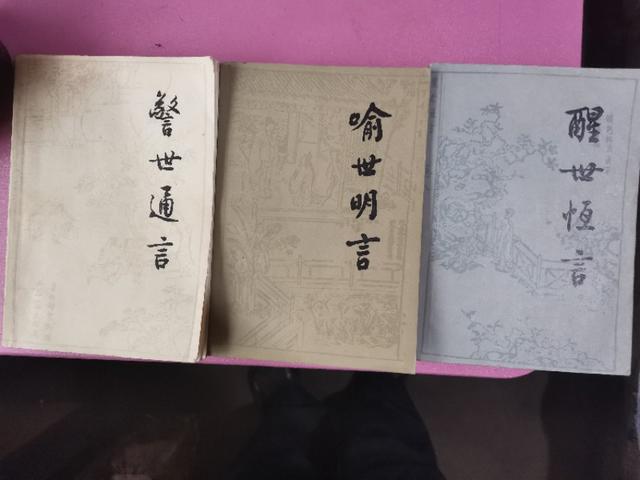 警世通言
喻世明言
醒世恒言